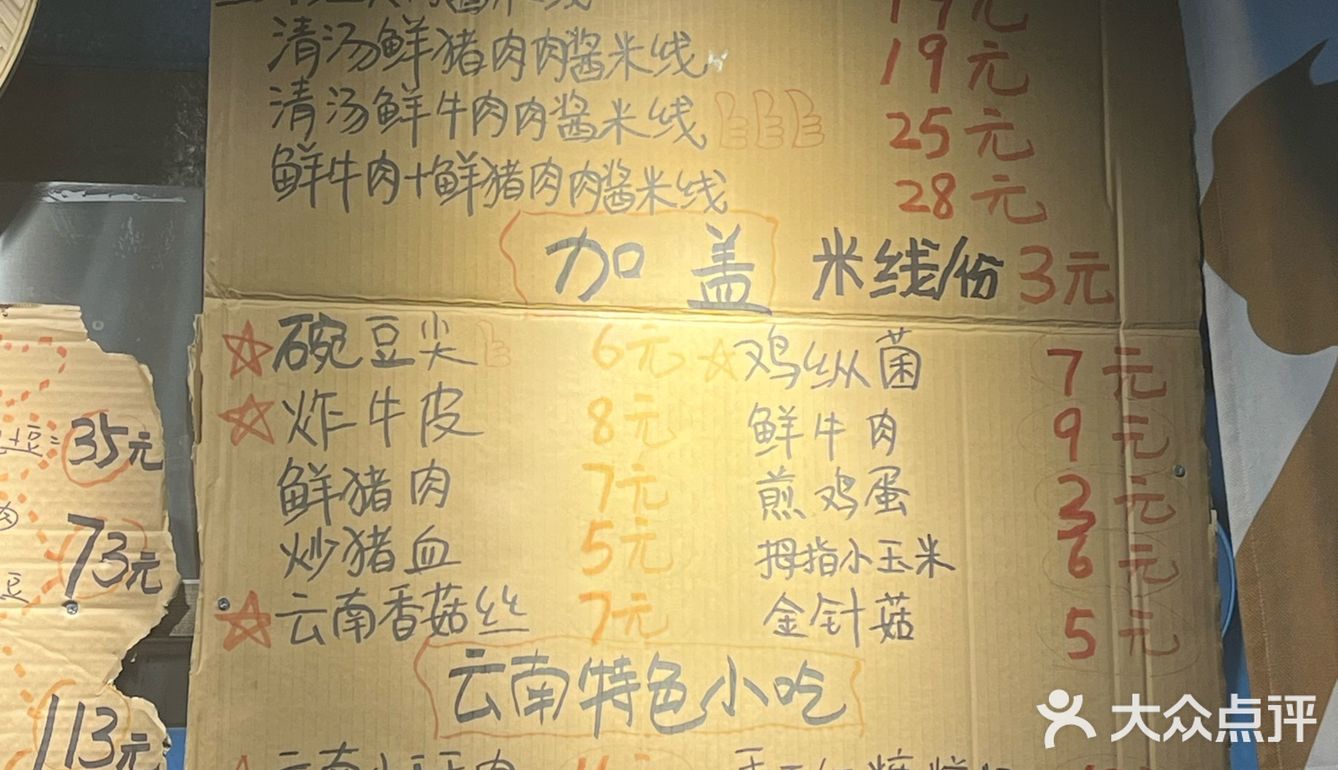 清汤鲜猪肉肉酱米线 19元
清汤鲜牛肉肉酱米线 25元
鲜牛肉+鲜猪肉肉酱米线 28元
加盖 米线/份 3元
碗豆尖 6元 鸡纵菌 7元
炸牛皮 8元 鲜牛肉 9元
鲜猪肉 7元 煎鸡蛋 3元
炒猪血 5元 拇指小玉米 6元
云南香菇丝 7元 金针菇 5元
云南特色小吃
35元
73元
豆
113元
大众点评